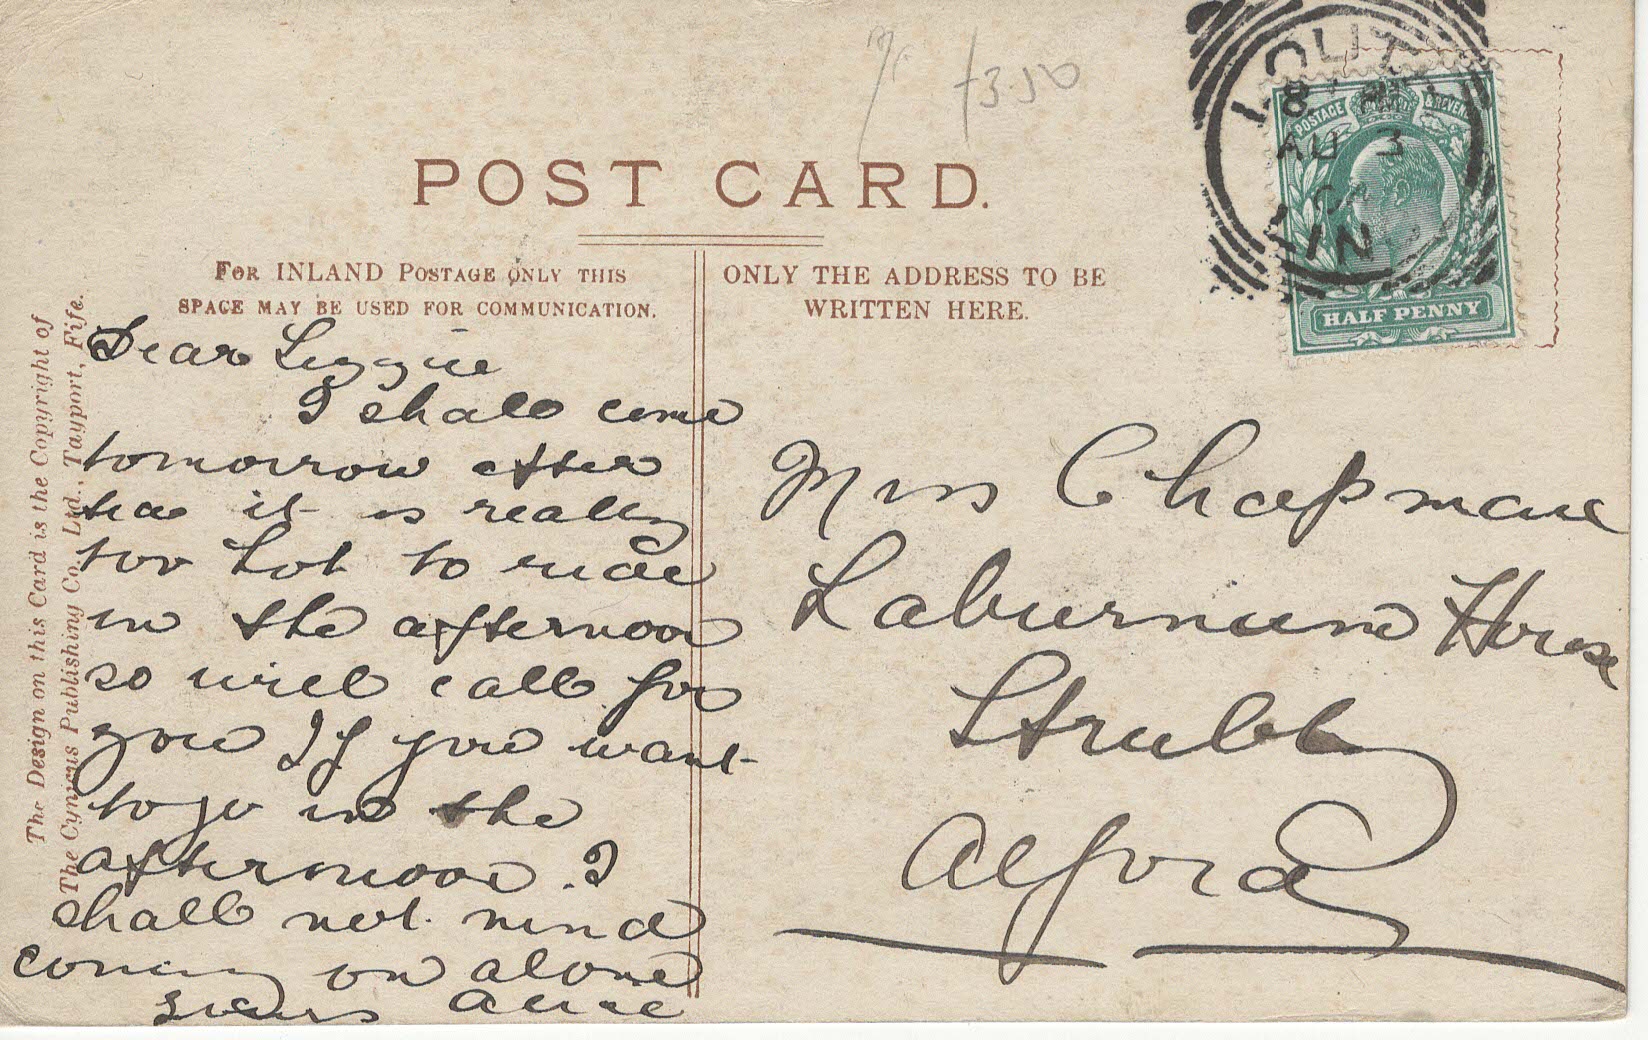 £3.50
POST CARD.
FOR INLAND POSTAGE ONLY THIS
SPACE MAY BE USED FOR COMMUNICATION.
ONLY THE ADDRESS TO BE
WRITTEN HERE.
LOUTH
AU 3
LIN
POSTAGE & REVENUE
HALF PENNY
The Design on this Card is the Copyright of
The Cynicus Publishing Co. Ltd., Tayport, Fife.
Dear Lizzie
I shall come
tomorrow after
tea it is really
too hot to ride
in the afternoon
so will call for
you If you want
to go in the
afternoon. I
shall not mind
coming on alone
Yours Annie
Miss Chapman
Laburnum House
Strubby
Alford